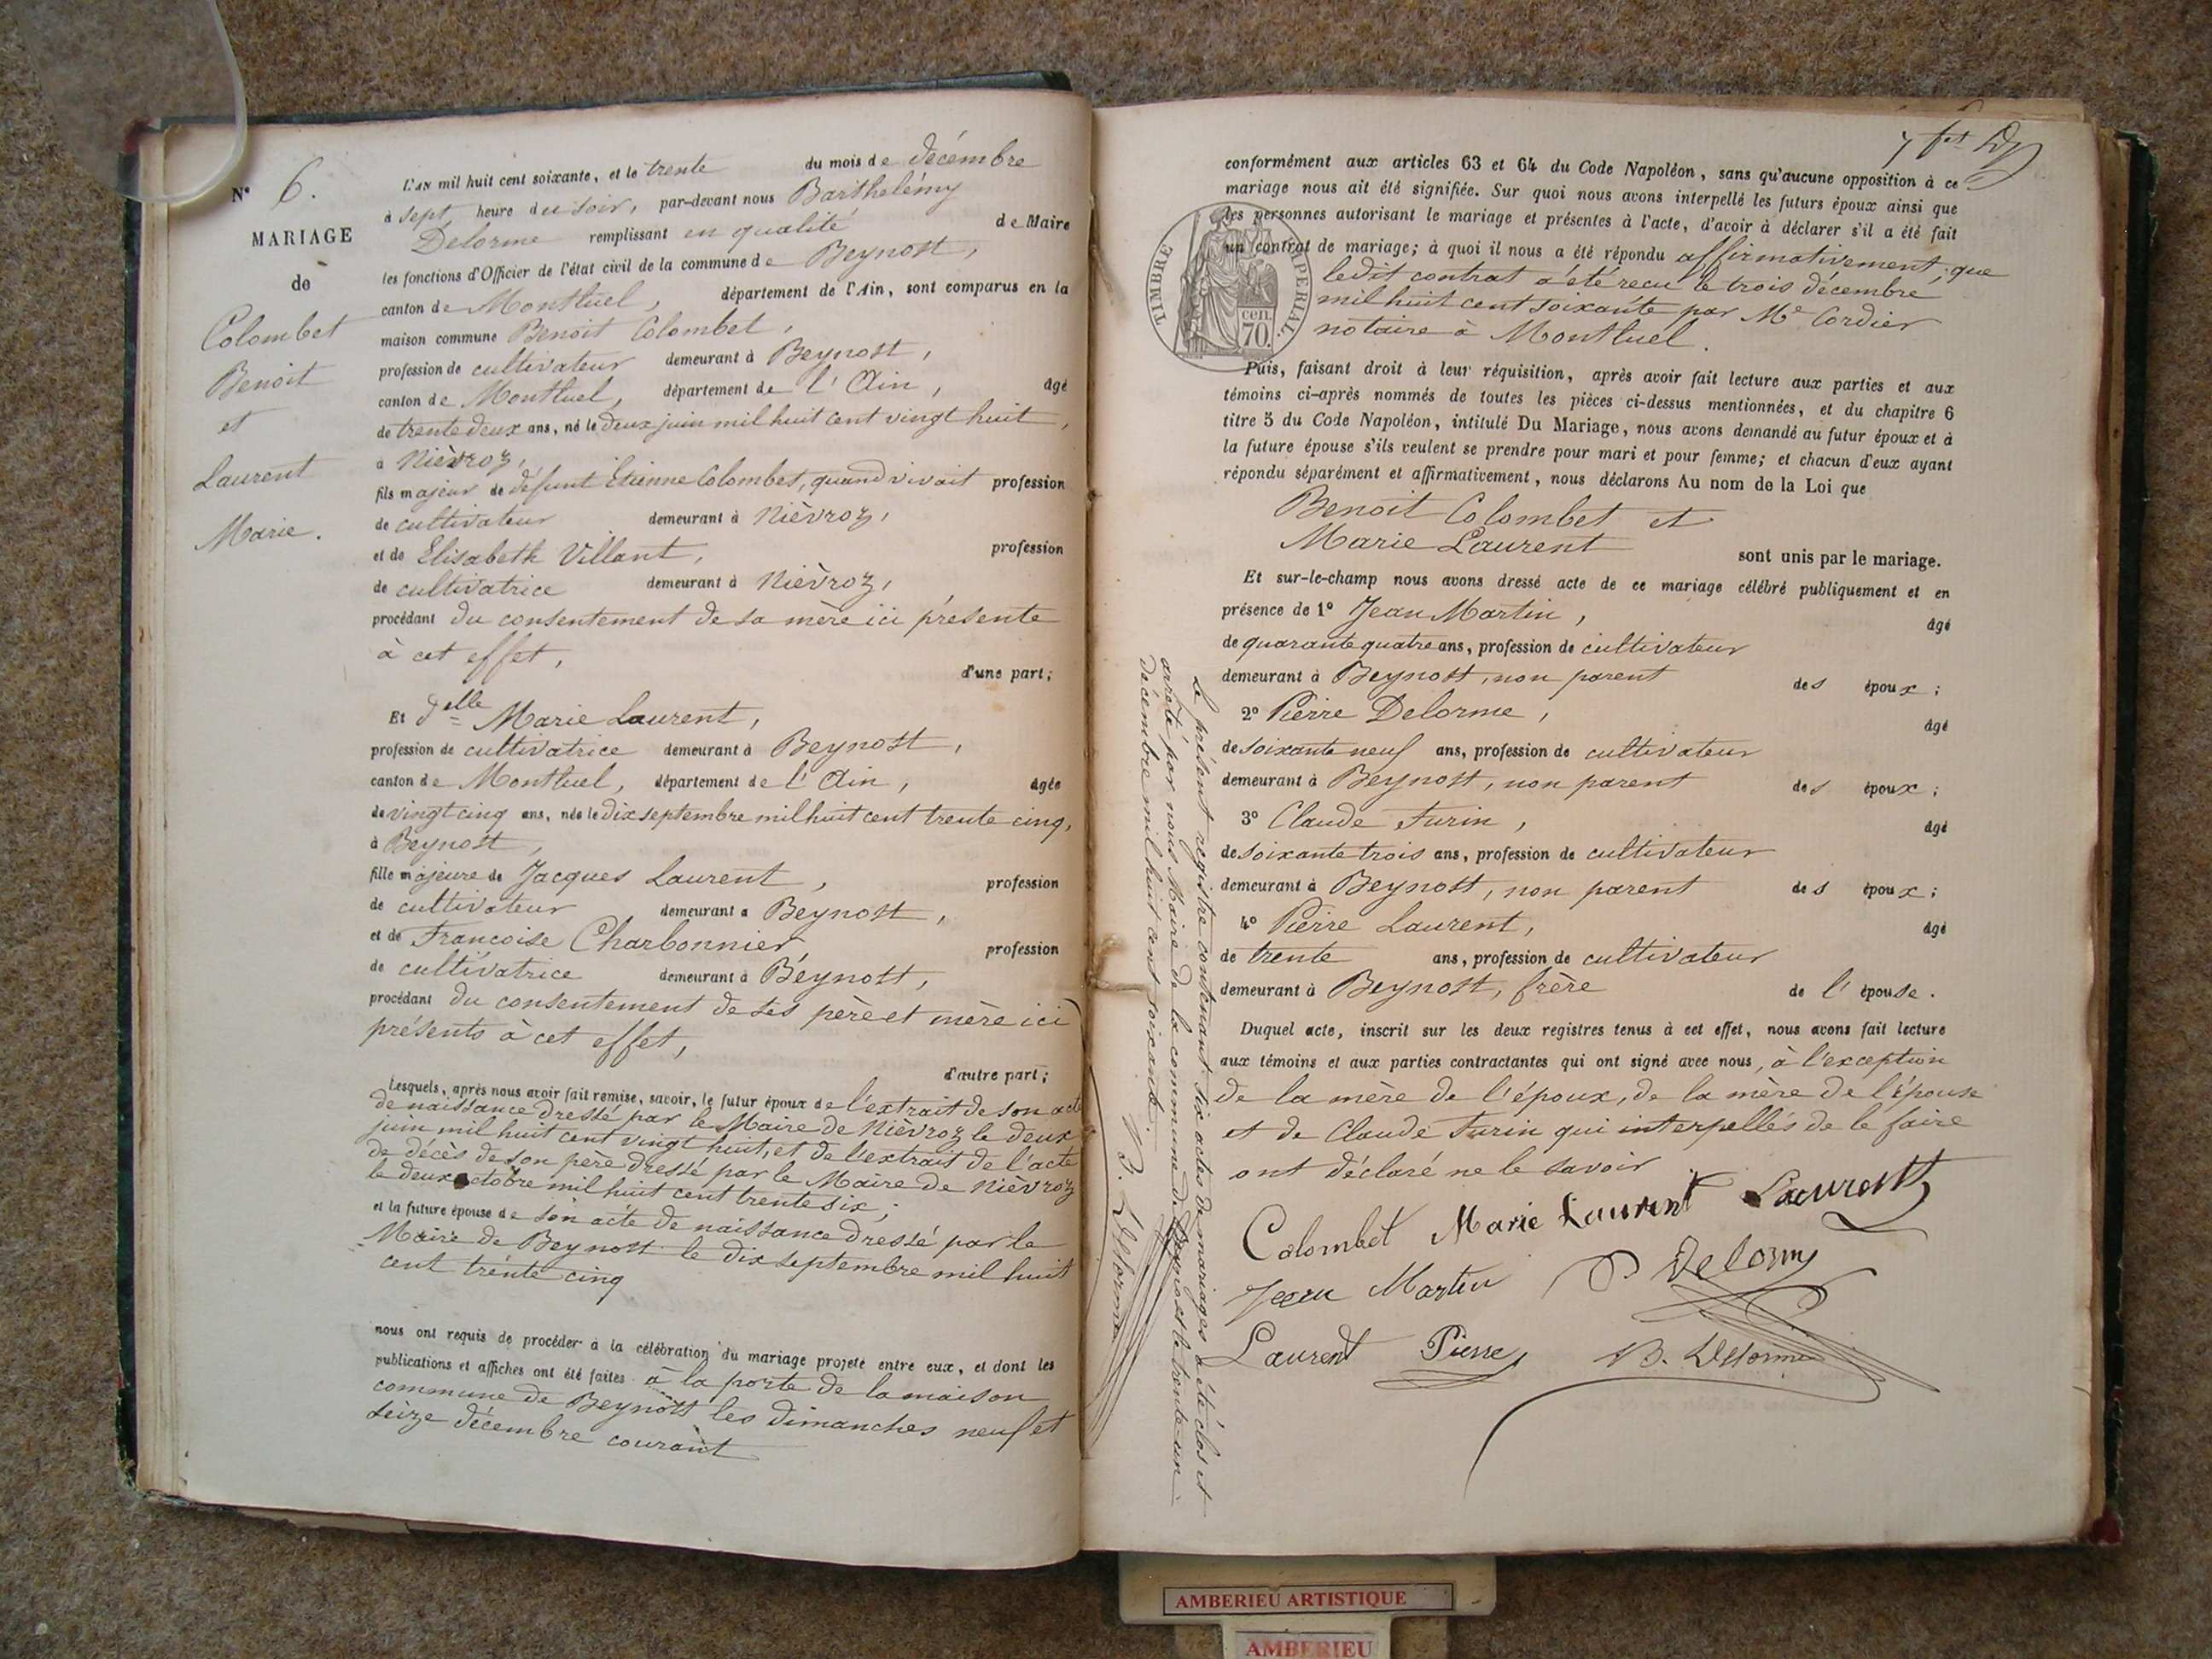 N° 6.
MARIAGE
de
Colombet
Benoit
et
Laurent
Marie.
L'AN mil huit cent soixante, et le trente du mois de décembre
à sept heure du soir, par-devant nous Barthelémy
Delorme remplissant en qualité de Maire
les fonctions d'Officier de l'état civil de la commune de Beynost,
canton de Montluel, département de l'Ain, sont comparus en la
maison commune Benoit Colombet,
profession de cultivateur demeurant à Beynost,
canton de Montluel, département de l'Ain, âgé
de trente deux ans, né le deux juin mil huit cent vingt huit,
à Nièvroz,
fils majeur de défunt Etienne Colombet, quand vivait profession
de cultivateur demeurant à Nièvroz,
et de Elisabeth Villant, profession
de cultivatrice demeurant à Nièvroz,
procédant du consentement de sa mère ici présente
à cet effet,
d'une part;
Et delle Marie Laurent,
profession de cultivatrice demeurant à Beynost,
canton de Montluel, département de l'Ain, âgée
de vingt cinq ans, née le dix septembre mil huit cent trente cinq,
à Beynost,
fille majeure de Jacques Laurent, profession
de cultivateur demeurant à Beynost,
et de Francoise Charbonnier profession
de cultivatrice demeurant à Beynost,
procédant du consentement de ses père et mère ici
présents à cet effet,
d'autre part;
Lesquels, après nous avoir fait remise, savoir, le futur époux de l'extrait de son acte
de naissance dressé par le Maire de Nièvroz le deux
juin mil huit cent vingt huit, et de l'extrait de l'acte
de décès de son père dressé par le Maire de Nièvroz
le deux octobre mil huit cent trente six;
et la future épouse de son acte de naissance dressé par le
Maire de Beynost le dix septembre mil huit
cent trente cinq
nous ont requis de procéder à la célébration du mariage projeté entre eux, et dont les
publications et affiches ont été faites à la porte de la maison
commune de Beynost les dimanches neuf et
seize décembre courant
7 fet
conformément aux articles 63 et 64 du Code Napoléon, sans qu'aucune opposition à ce
mariage nous ait été signifiée. Sur quoi nous avons interpellé les futurs époux ainsi que
les personnes autorisant le mariage et présentes à l'acte, d'avoir à déclarer s'il a été fait
un contrat de mariage; à quoi il nous a été répondu affirmativement, que
ledit contrat a été reçu le trois décembre
mil huit cent soixante par Me Cordier
notaire à Montluel.
TIMBRE IMPÉRIAL.
70 cen.
Puis, faisant droit à leur réquisition, après avoir fait lecture aux parties et aux
témoins ci-après nommés de toutes les pièces ci-dessus mentionnées, et du chapitre 6
titre 5 du Code Napoléon, intitulé Du Mariage, nous avons demandé au futur époux et à
la future épouse s'ils veulent se prendre pour mari et pour femme; et chacun d'eux ayant
répondu séparément et affirmativement, nous déclarons Au nom de la Loi que
Benoit Colombet et
Marie Laurent
sont unis par le mariage.
Et sur-le-champ nous avons dressé acte de ce mariage célébré publiquement et en
présence de 1° Jean Martin, âgé
de quarante quatre ans, profession de cultivateur
demeurant à Beynost, non parent des époux;
2° Pierre Delorme, âgé
de soixante neuf ans, profession de cultivateur
demeurant à Beynost, non parent des époux;
3° Claude Turin, âgé
de soixante trois ans, profession de cultivateur
demeurant à Beynost, non parent des époux;
4° Pierre Laurent, âgé
de trente ans, profession de cultivateur
demeurant à Beynost, frère de l'épouse.
Duquel acte, inscrit sur les deux registres tenus à cet effet, nous avons fait lecture
aux témoins et aux parties contractantes qui ont signé avec nous, à l'exception
de la mère de l'époux, de la mère de l'épouse
et de Claude Turin qui interpellés de le faire
ont déclaré ne le savoir
Colombet Marie Laurent Laurent
Jean Martin P. Delorme
Laurent Pierre B. Delorme
Le présent registre contenant six actes de mariages a été clos et
arrêté par nous Maire de la commune de Beynost le trente un
décembre mil huit cent soixante.
B. Delorme
AMBERIEU ARTISTIQUE
AMBERIEU